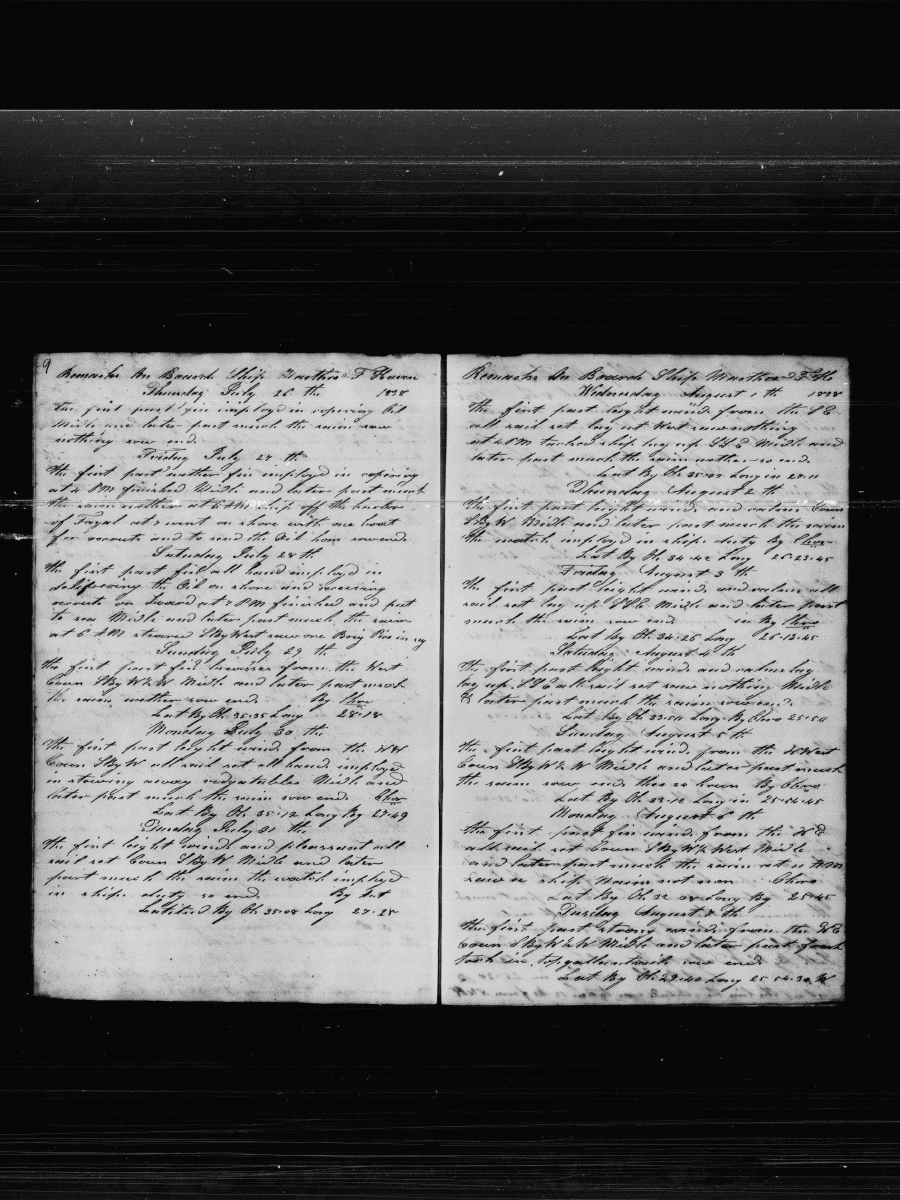 9
Remarks On Board Ship Marthas F Haven
Thursday July 26 th 1838
the first part fin imployd in copering Oil
Midle and later part much the saim saw
nothing sow end
Friday July 27 th
the first part nether fin imployd in copering
at 4 PM finished Midle and later part much
the saim nother at 5 AM Ship off the harbor
of Fayal at 7 went on shore with one boat
for recruts and to send the Oil hom sow end
Saturday July 28 th
the first part fin all hand imployd in
delifering the Oil on shore and receiving
recruts on board at 7 PM finished and put
to sea Midle and later part much the saim
at 6 AM steared S By West saw one Brig
Sunday July 29 th
the first part fin breses from the West
Coun S By W & W Midle and later part much
the saim nother sow end By Chro
Lat By Ob 35-35 Long 28-18
Monday July 30 th
the first part leight wind from the NW
Coun S By W all sail set all hand imployd
in stowing away vegatables Midle and
later part much the saim sow end Chro
Lat By Ob 35-12 Long By 27-49
Tuesday July 31 the
the first leight wind and pleasant all
sail set Coun S By W Midle and later
part much the saim the watch imployd
in ships duty so end By
Latitued By Ob 35-08 Long 27-28
Remarks On Board Ship Marthas F
Wednesday August 1 th 1838
the first part leight wind from the SE
all sail set lay
at 4 PM tacked ship lay up SSE Midle and
later part much the saim nother so end
Lat By Ob 35-01 Long in
Thursday August 2 th
the first part leight wind and calms Coun
S By W Midle and later part much the saim
the watch imployd in ships duty by Chro
Lat By Ob 34-42 Long 26-23-45
Friday August 3 th
the first part leight wind and calms all
sail set lay up SSE Midle and later part
much the saim sow end in By Chro
Lat By Ob 34-26 Long 26-13-45
Saturday August 4 th
the first part leight wind and calms lay
up SSE all sail set saw nothing Midle
& later part much the saim sow end
Lat By Ob 33-51 Long By Chro 25-50
Sunday August 5 th
the first part leight wind from the N West
Coun S By W & W Midle and later part much
the saim sow end thes 24 hours By Chro
Lat By Ob 33-12 Long in 25-54-45
Monday August 6 th
the first part fin wind from the NE
all sail set Coun S By W & West Midle
and later part much the saim at 11
saw a ship
Lat By Ob 32 08 Long By 25-45
Tuesday August 7 th
the first part strong wind from the NE
Coun S By W & W Midle and later part fresh
took in topgallantsails sow end
Lat By Ob 29-40 Long 25 54-30 W